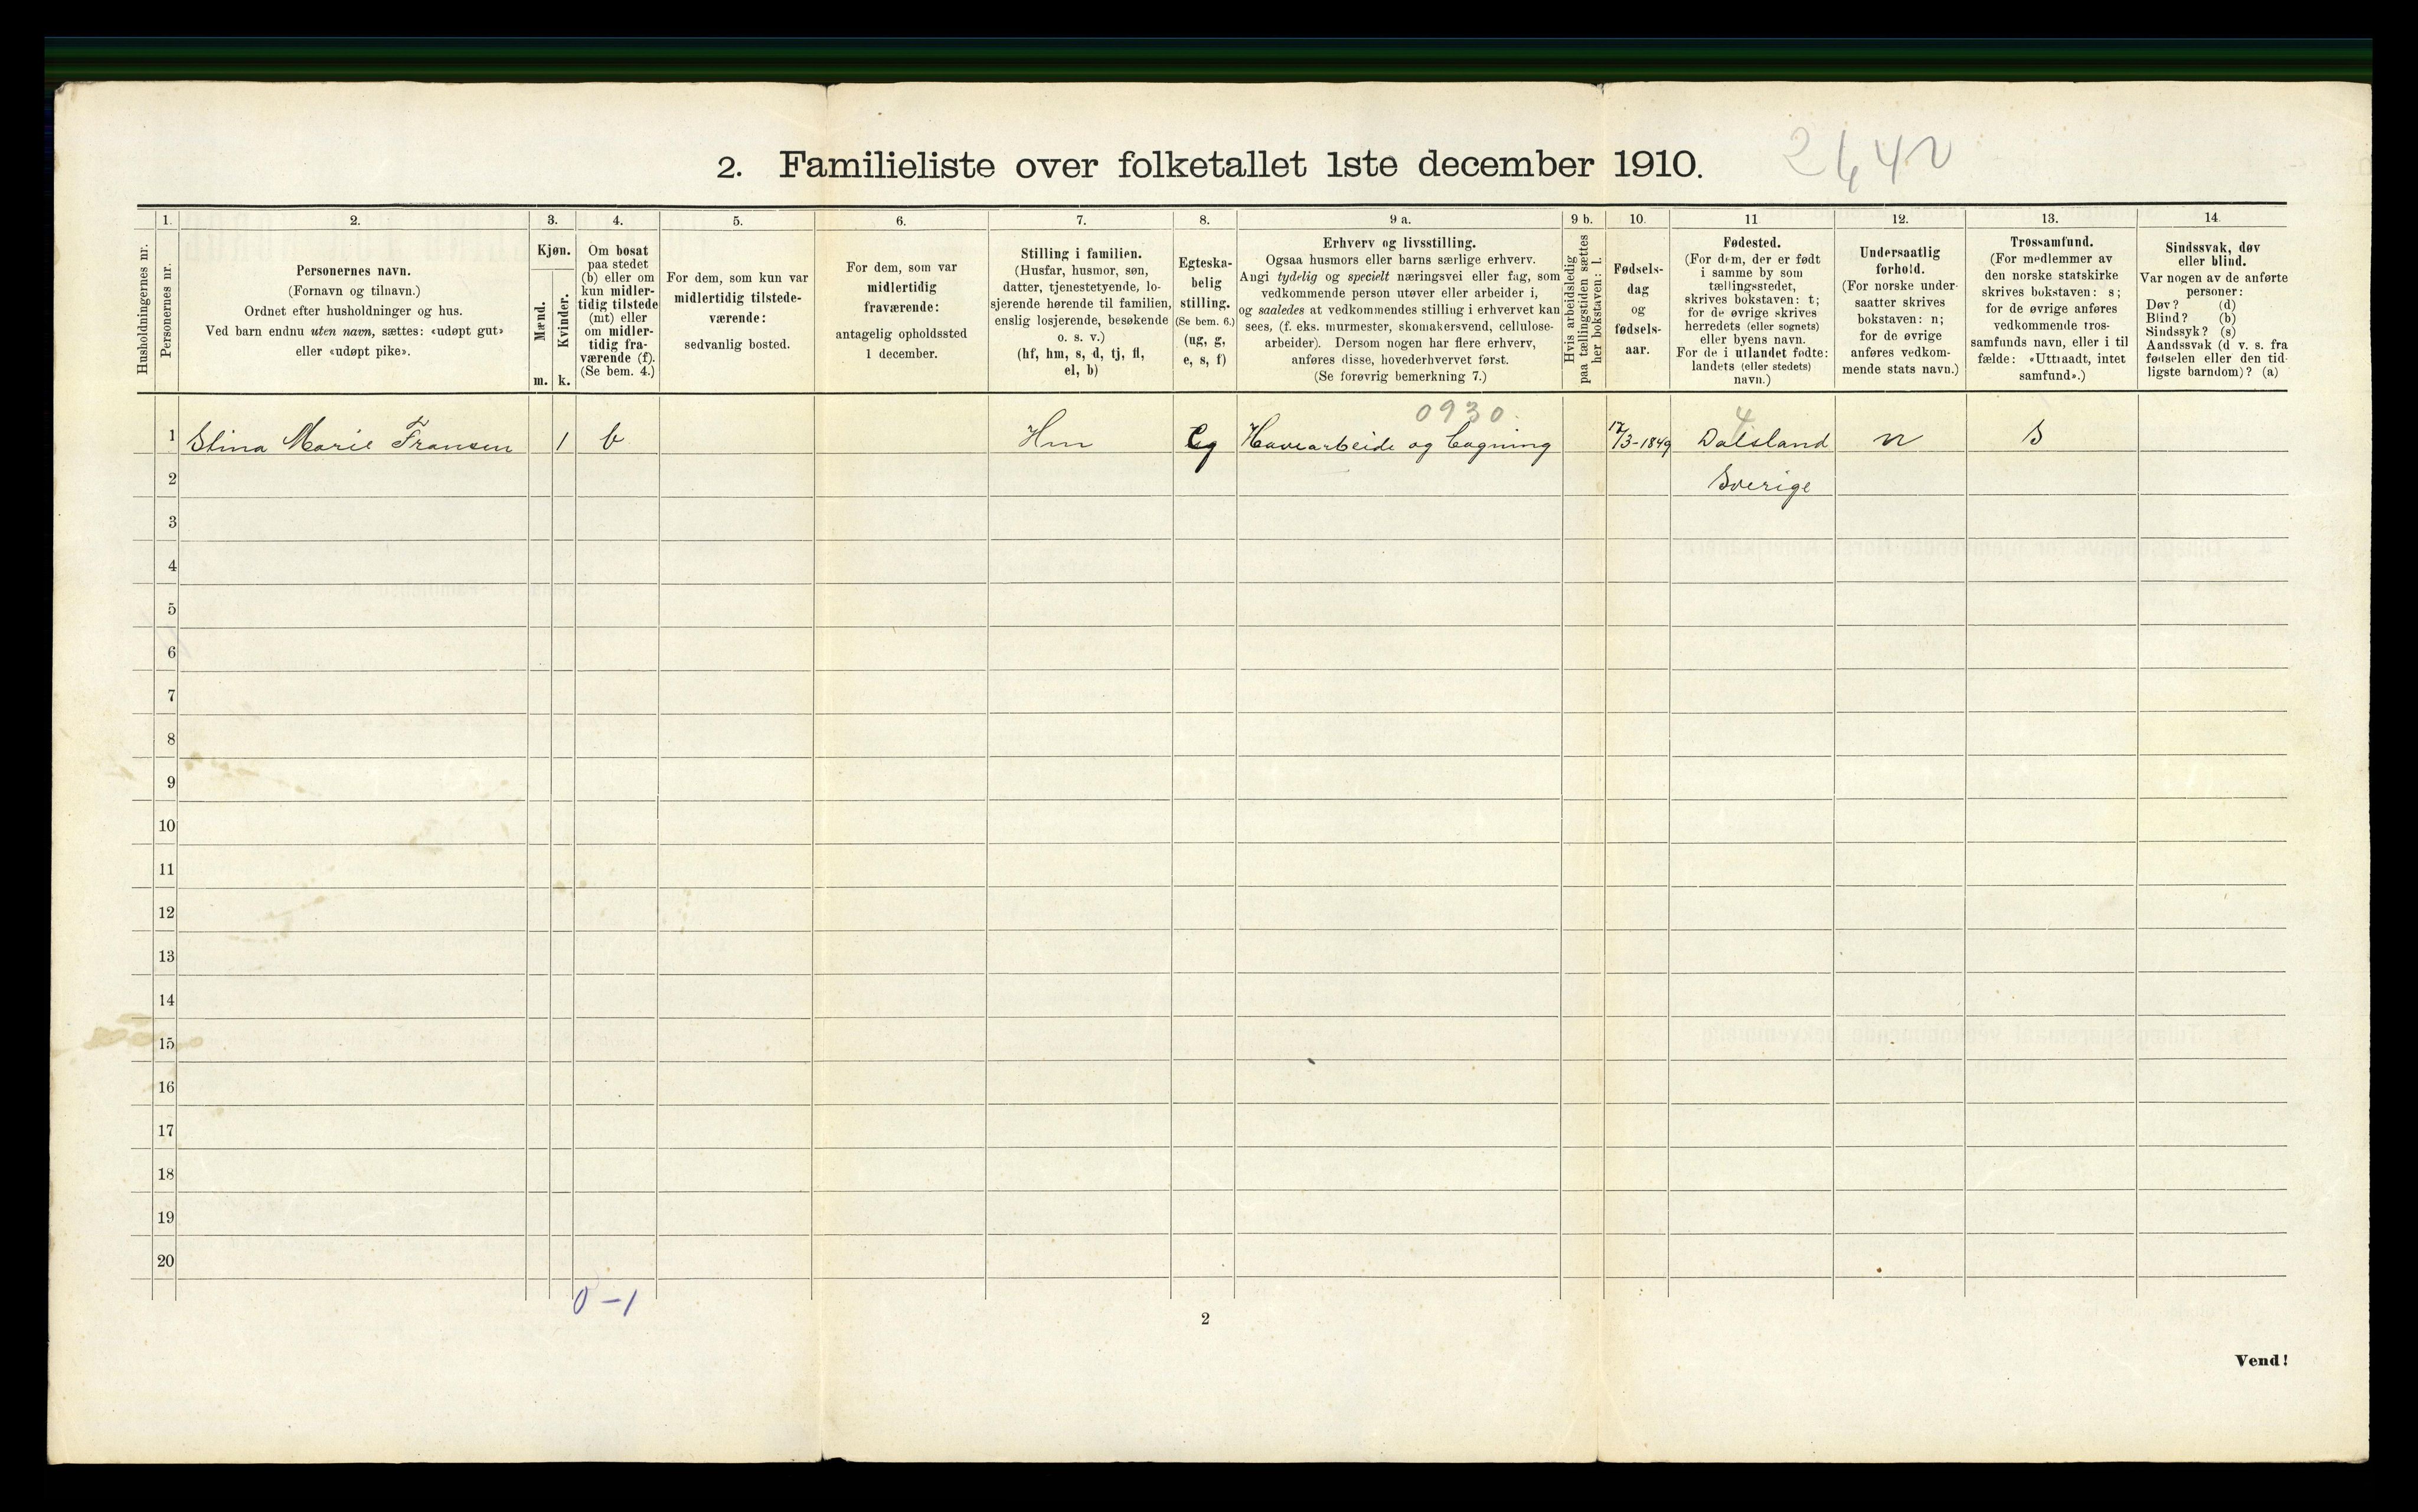 2. Familieliste over folketallet 1ste december 1910.
2642
Husholdningernes nr.
1.
Personernes nr.
2.
Personernes navn.
(Fornavn og tilnavn.)
Ordnet efter husholdninger og hus.
Ved barn endnu uten navn, sættes: «udøpt gut»
eller «udøpt pike».
3.
Kjøn.
Mænd.
Kvinder.
m. k.
4.
Om bosat
paa stedet
(b) eller om
kun midler-
tidig tilstede
(mt) eller
om midler-
tidig fra-
værende (f).
(Se bem. 4.)
5.
For dem, som kun var
midlertidig tilstede-
værende:
sedvanlig bosted.
6.
For dem, som var
midlertidig
fraværende:
antagelig opholdssted
1 december.
7.
Stilling i familien.
(Husfar, husmor, søn,
datter, tjenestetyende, lo-
sjerende hørende til familien,
enslig losjerende, besøkende
o. s. v.)
(hf, hm, s, d, tj, fl,
el, b)
8.
Egteska-
belig
stilling.
(Se bem. 6.)
(ug, g,
e, s, f)
9 a.
Erhverv og livsstilling.
Ogsaa husmors eller barns særlige erhverv.
Angi tydelig og specielt næringsvei eller fag, som
vedkommende person utøver eller arbeider i,
og saaledes at vedkommendes stilling i erhvervet kan
sees, (f. eks. murmester, skomakersvend, cellulose-
arbeider). Dersom nogen har flere erhverv,
anføres disse, hovederhvervet først.
(Se forøvrig bemerkning 7.)
9 b.
Hvis arbeidsledig
paa tællingstiden sættes
her bokstaven: l.
10.
Fødsels-
dag
og
fødsels-
aar.
11
Fødested.
(For dem, der er født
i samme by som
tællingsstedet,
skrives bokstaven: t;
for de øvrige skrives
herredets (eller sognets)
eller byens navn.
For de i utlandet fødte:
landets (eller stedets)
navn.)
12.
Undersaatlig
forhold.
(For norske under-
saatter skrives
bokstaven: n;
for de øvrige
anføres vedkom-
mende stats navn.)
13.
Trossamfund.
(For medlemmer av
den norske statskirke
skrives bokstaven: s;
for de øvrige anføres
vedkommende tros-
samfunds navn, eller i til
fælde: «Uttraadt, intet
samfund».)
14.
Sindssvak, døv
eller blind.
Var nogen av de anførte
personer:
Døv? (d)
Blind? (b)
Sindssyk? (s)
Aandssvak (d v. s. fra
fødselen eller den tid-
ligste barndom)? (a)
0930. 4
1 Stina Marie Fransen 1 b Hm Eg Havearbeide og Bagning 17/3-1849 Dalsland n S
2 Sverige
3
4
5
6
7
8
9
10
11
12
13
14
15
16
17
18
19
20
0-1
2
Vend!